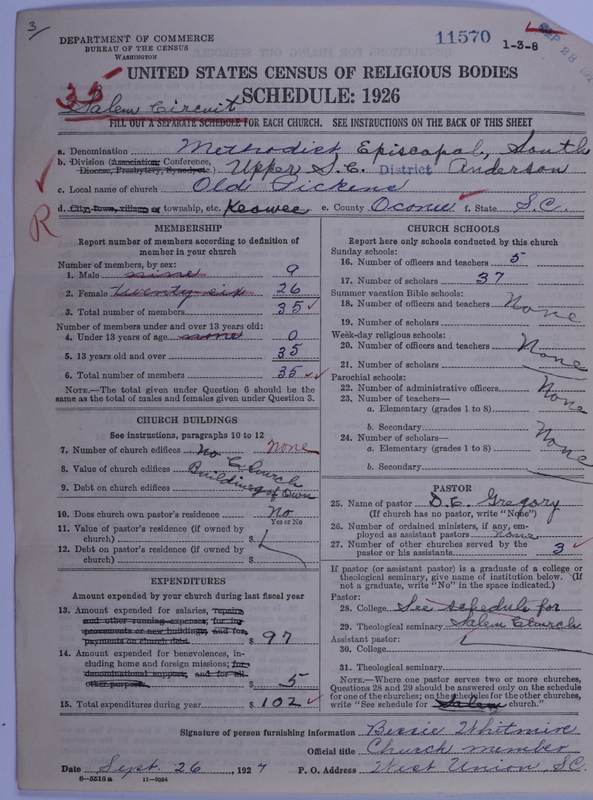 3/
DEPARTMENT OF COMMERCE
BUREAU OF THE CENSUS
WASHINGTON
11570
1-3-8
SEP 28
UNITED STATES CENSUS OF RELIGIOUS BODIES
35
Salem Circuit
SCHEDULE: 1926
FILL OUT A SEPARATE SCHEDULE FOR EACH CHURCH. SEE INSTRUCTIONS ON THE BACK OF THIS SHEET
a. Denomination Methodist Episcopal, South
b. Division (Association, Conference, Diocese, Presbytery, Synod, etc.) Upper S.C. District Anderson
c. Local name of church Old Pickens
d. City, town, village or township, etc. Keowee e. County Oconee f. State S.C.
R
MEMBERSHIP
Report number of members according to definition of
member in your church
Number of members, by sex:
1. Male nine 9
2. Female twenty-six 26
3. Total number of members 35
Number of members under and over 13 years old:
4. Under 13 years of age none 0
5. 13 years old and over 35
6. Total number of members 35
NOTE.—The total given under Question 6 should be
same as the total of males and females given under Question 3.
CHURCH BUILDINGS
See instructions, paragraphs 10 to 12
7. Number of church edifices No Church None
8. Value of church edifices Building of Own
9. Debt on church edifices
10. Does church own pastor's residence? No
Yes or No
11. Value of pastor's residence (if owned by
church) $
12. Debt on pastor's residence (if owned by
church) $
EXPENDITURES
Amount expended by your church during last fiscal year
13. Amount expended for salaries, repairs,
and other running expenses; for im-
provements or new buildings, and for
payments on church debt $ 97
14. Amount expended for benevolences, in-
cluding home and foreign missions; for
denominational support, and for all
other purposes 5
15. Total expenditures during year $ 102
CHURCH SCHOOLS
Report here only schools conducted by this church
Sunday schools:
16. Number of officers and teachers 5
17. Number of scholars 37
Summer vacation Bible schools:
18. Number of officers and teachers None
19. Number of scholars
Week-day religious schools:
20. Number of officers and teachers None
21. Number of scholars
Parochial schools:
22. Number of administrative officers None
23. Number of teachers—
a. Elementary (grades 1 to 8)
b. Secondary
24. Number of scholars— None
a. Elementary (grades 1 to 8)
b. Secondary
PASTOR
25. Name of pastor D.E. Gregory
(If church has no pastor, write "None")
26. Number of ordained ministers, if any, em-
ployed as assistant pastors none
27. Number of other churches served by the
pastor or his assistants 3
If pastor (or assistant pastor) is a graduate of a college or
theological seminary, give name of institution below. (If
not a graduate, write "No" in the space indicated.)
Pastor:
28. College See schedule for
29. Theological seminary Salem Church
Assistant pastor:
30. College
31. Theological seminary
NOTE.—Where one pastor serves two or more churches,
Questions 28 and 29 should be answered only on the schedule
for one of the churches; on the schedules for the other churches,
write "See schedule for Salem church."
Signature of person furnishing information Bessie Whitmire
Official title Church member
Date Sept. 26, 1927 P. O. Address West Union, S.C.
8—5519a 11—9034